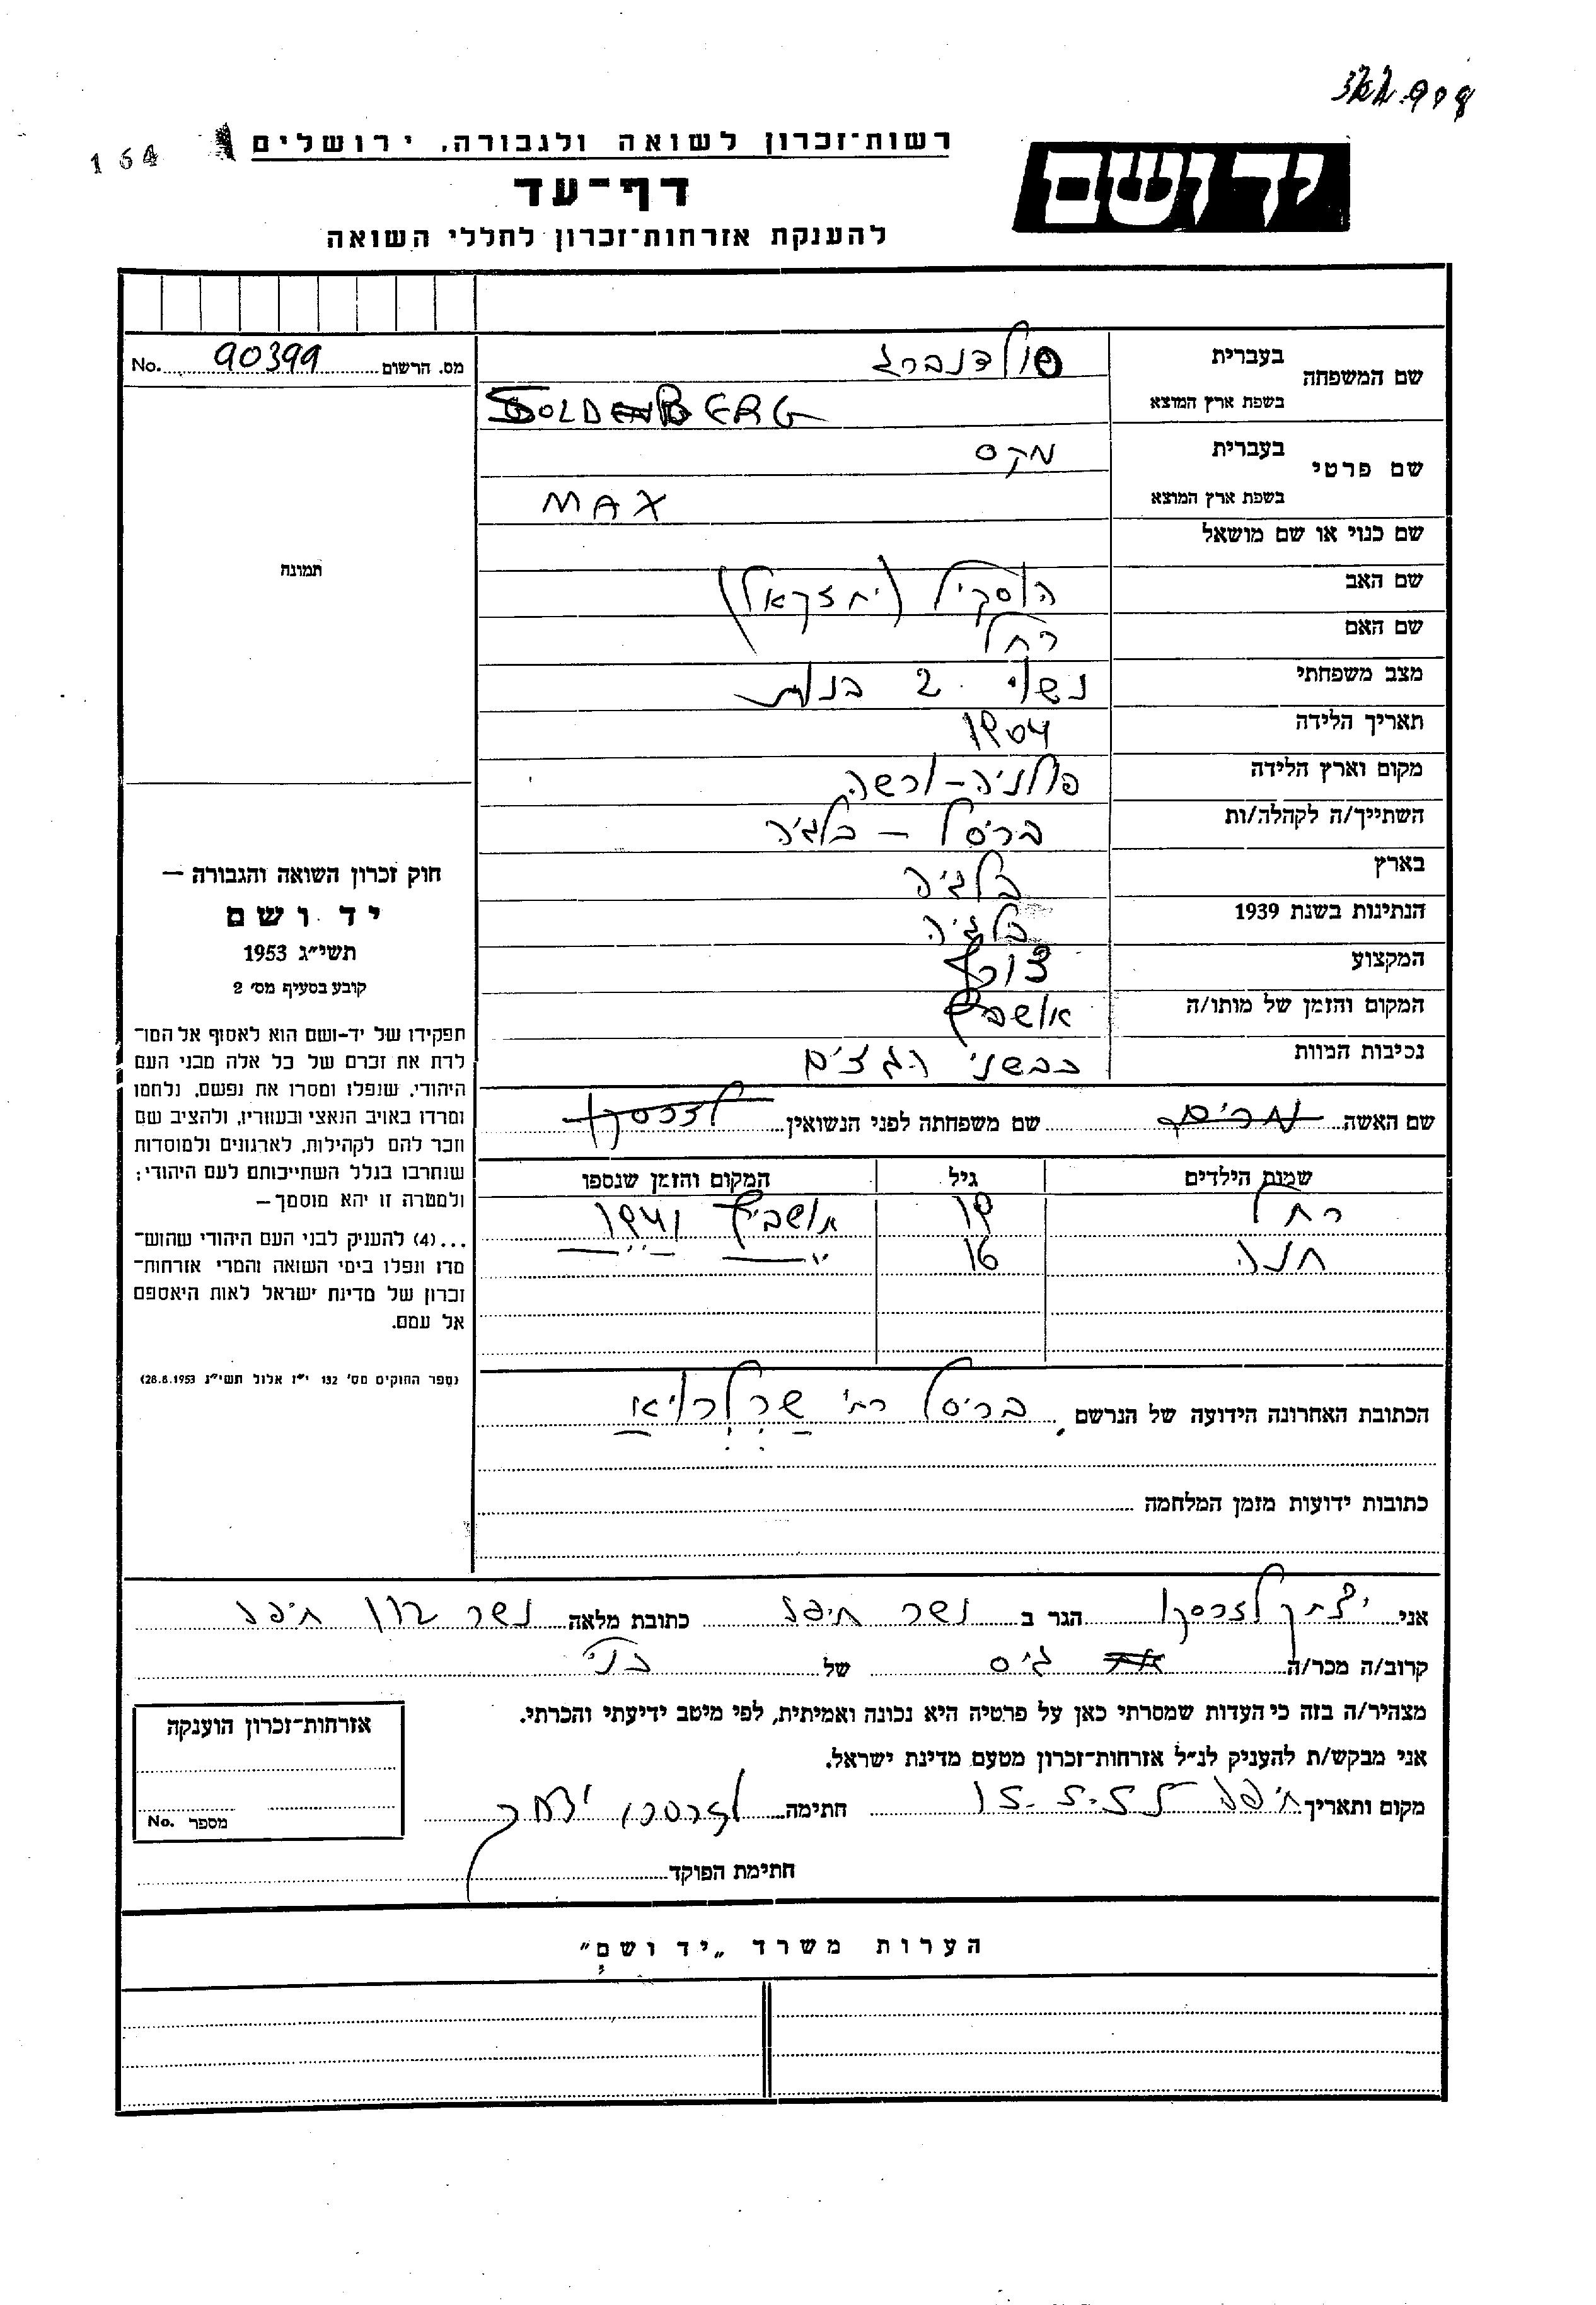 164
רשות־זכרון לשואה ולגבורה, ירושלים
יד ושם
דף־עד
להענקת אזרחות־זכרון לחללי השואה
מס. הרשום 90399 No.
שם המשפחה בעברית סולדנברג
בשפת ארץ המוצא SOLDENBERG
שם פרטי בעברית מקס
בשפת ארץ המוצא MAX
שם כנוי או שם מושאל
שם האב הסקיל (יחזקאל)
שם האם רחל
מצב משפחתי נשוי 2 בנות
תאריך הלידה 1904
מקום וארץ הלידה פולניה - ורשה
השתייך/ה לקהלה/ות בריסל - בלגיה
בארץ בלגיה
הנתינות בשנת 1939 בלגיה
המקצוע צורף
המקום והזמן של מותו/ה אושביץ
נסיבות המוות כבשני הגזים
תמונה
חוק זכרון השואה והגבורה —
יד ושם
תשי"ג 1953
קובע בסעיף מס' 2
תפקידו של יד-ושם הוא לאסוף אל המו־
לדת את זכרם של כל אלה מבני העם
היהודי, שנפלו ומסרו את נפשם, נלחמו
ומרדו באויב הנאצי ובעוזריו, ולהציב שם
וזכר להם לקהילות, לארגונים ולמוסדות
שנחרבו בגלל השתייכותם לעם היהודי;
ולמטרה זו יהא מוסמך—
...(4) להעניק לבני העם היהודי שהוש־
מדו ונפלו בימי השואה והמרי אזרחות־
זכרון של מדינת ישראל לאות היאספם
אל עמם.
(ספר החוקים מס' 132 י"ז אלול תשי"ג 28.8.1953)
שם האשה מרים שם משפחתה לפני הנשואין לזרסקי
שמות הילדים גיל המקום והזמן שנספו
רחל 19 אושביץ 1941
חנה 16 " "
הכתובת האחרונה הידועה של הנרשם בריסל רח'
כתובות ידועות מזמן המלחמה
אני יצחק לזרסקי הגר ב נשר חיפה כתובת מלאה נשר חיפה
קרוב/ה מכר/ה גיס של
מצהיר/ה בזה כי העדות שמסרתי כאן על פרטיה היא נכונה ואמיתית, לפי מיטב ידיעתי והכרתי.
אני מבקש/ת להעניק לנ"ל אזרחות־זכרון מטעם מדינת ישראל.
מקום ותאריך חיפה חתימה לזרסקי יצחק
חתימת הפוקד
אזרחות־זכרון הוענקה
מספר No.
הערות משרד „יד ושם"